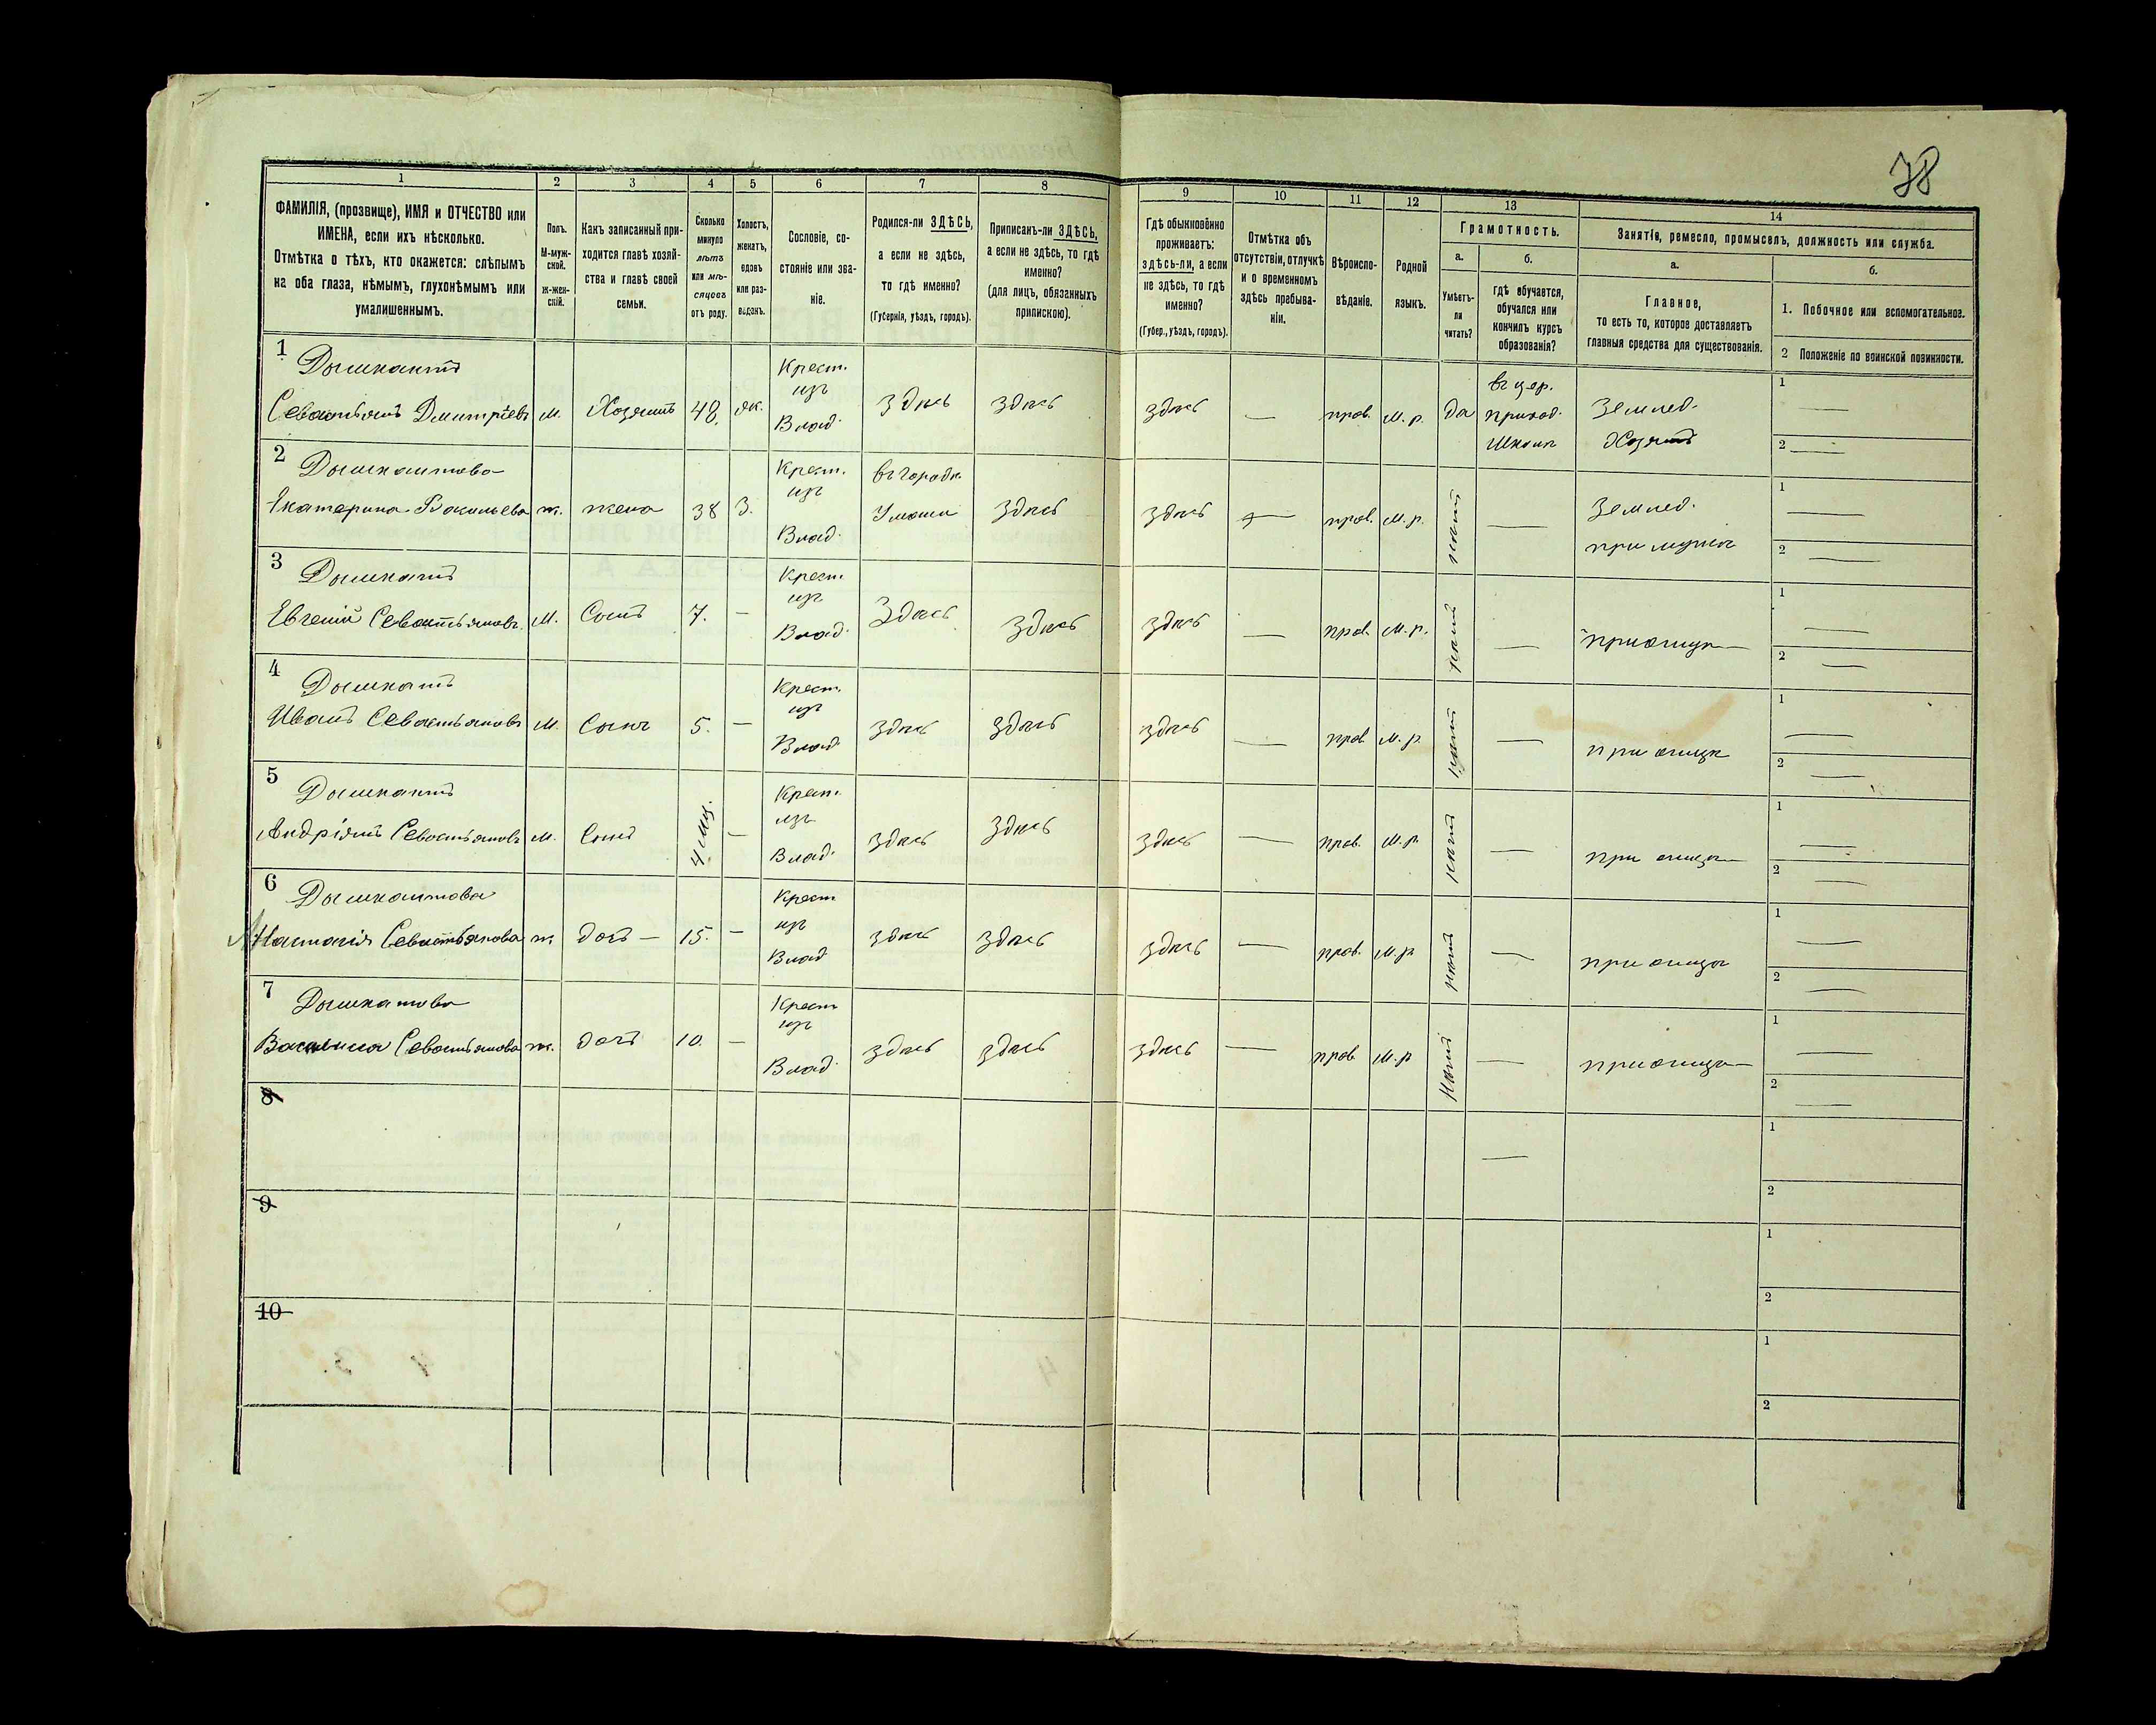 78
1
2
3
4
5
6
7
8
9
10
11
12
13
14
ФАМИЛІЯ, (прозвище), ИМЯ и ОТЧЕСТВО или
ИМЕНА, если ихъ нѣсколько.
Отмѣтка о тѣхъ, кто окажется: слѣпымъ
на оба глаза, нѣмымъ, глухонѣмымъ или
умалишеннымъ.
Полъ.
М-муж-
ской.
ж-жен-
скій.
Какъ записанный при-
ходится главѣ хозяй-
ства и главѣ своей
семьи.
Сколько
минуло
лѣтъ
или мѣ-
сяцевъ
отъ роду.
Холостъ,
женатъ,
вдовъ
или раз-
веденъ.
Сословіе, со-
стояніе или зва-
ніе.
Родился-ли ЗДѢСЬ,
а если не здѣсь,
то гдѣ именно?
(Губернія, уѣздъ, городъ).
Приписанъ-ли ЗДѢСЬ,
а если не здѣсь, то гдѣ
именно?
(для лицъ, обязанныхъ
припискою).
Гдѣ обыкновенно
проживаетъ:
здѣсь-ли, а если
не здѣсь, то гдѣ
именно?
(Губер., уѣздъ, городъ).
Отмѣтка объ
отсутствіи, отлучкѣ
и о временномъ
здѣсь пребыва-
ніи.
Вѣроиспо-
вѣданіе.
Родной
языкъ.
Грамотность.
а.
Умѣетъ-
ли
читать?
б.
гдѣ обучается,
обучался или
кончилъ курсъ
образованія?
Занятіе, ремесло, промыселъ, должность или служба.
а.
Главное,
то есть то, которое доставляетъ
главныя средства для существованія.
б.
1. Побочное или вспомогательное.
2 Положеніе по воинской повинности.
1
Дышкантъ
Севастьянъ Дмитріевъ
м.
Хозяинъ
48.
жк.
Крест.
изъ
Влад.
Здѣсь
здѣсь
здѣсь
—
прав.
м. р.
да
въ цер.
приход.
школѣ
Землед.
Хозяинъ
1
—
2
—
2
Дышкантова
Екатерина Васильева
ж.
жена
38
З.
Крест.
изъ
Влад.
въ городѣ
Умани
здѣсь
здѣсь
—
прав.
м. р.
нѣтъ
—
Землед.
при мужѣ
1
—
2
—
3
Дышкантъ
Евгеній Севастьяновъ
м.
Сынъ
7.
—
Крест.
изъ
Влад.
Здѣсь
здѣсь
здѣсь
—
прав.
м. р.
нѣтъ
—
при отцѣ
1
—
2
—
4
Дышкантъ
Иванъ Севастьяновъ
м.
Сынъ
5.
—
Крест.
изъ
Влад.
здѣсь
здѣсь
здѣсь
—
прав.
м. р.
нѣтъ
—
при отцѣ
1
—
2
—
5
Дышкантъ
Андріянъ Севастьяновъ
м.
Сынъ
4 мѣс.
—
Крест.
изъ
Влад.
здѣсь
здѣсь
здѣсь
—
прав.
м. р.
нѣтъ
—
при отцѣ
1
—
2
—
6
Дышкантова
Настасія Севастьянова
ж.
дочь
15.
—
Крест
изъ
Влад
здѣсь
здѣсь
здѣсь
—
прав.
м. р.
нѣтъ
—
при отцѣ
1
—
2
—
7
Дышкантова
Василиса Севастьянова
ж.
дочь
10.
—
Крест
изъ
Влад.
здѣсь
здѣсь
здѣсь
—
прав.
м. р.
нѣтъ
—
при отцѣ
1
—
2
—
8
—
1
2
9
1
2
10
1
2